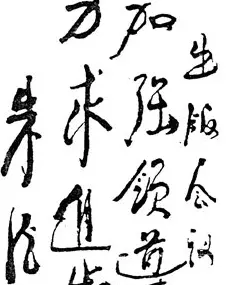 出版会议
加强领导
力求進步
朱德